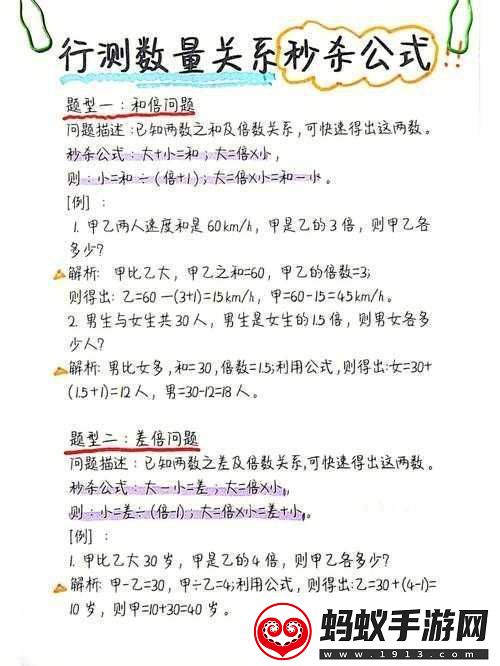 行测数量关系秒杀公式!!
题型一：和倍问题
问题描述：已知两数之和及倍数关系，可快速得出这两数。
秒杀公式：大+小=和；大=倍×小，
则：小=和÷(倍+1)；大=倍×小=和-小。
[例]：
1. 甲乙两人速度和是60km/h，甲是乙的3倍，则甲乙各
多少?
解析：甲比乙大，甲乙之和=60，甲乙的倍数=3;
则得出：乙=60—(3+1)=15km/h，甲=60-15=45km/h。
2. 男生与女生共30人，男生是女生的1.5倍，则男女各多
少人?
解析：男比女多，和=30,倍数=1.5;利用公式，则得出:女=30+
(1.5+1)=12人，男=30-12=18人。
题型二：差倍问题
问题描述：已知两数之差及倍数关系,可快速得出这两数。
秒杀公式：大一小=差；大=倍×小,
则：小=差÷(倍-1)；大=倍×小=差+小。
[例]：
1. 甲比乙大30岁，甲是乙的4倍，则甲乙各多少?
解析：甲-乙=30，甲÷乙=4;利用公式，则得出:乙=30+(4-1)=
10岁，则甲=10+30=40岁。
蚂蚁手游网
www.1913.com